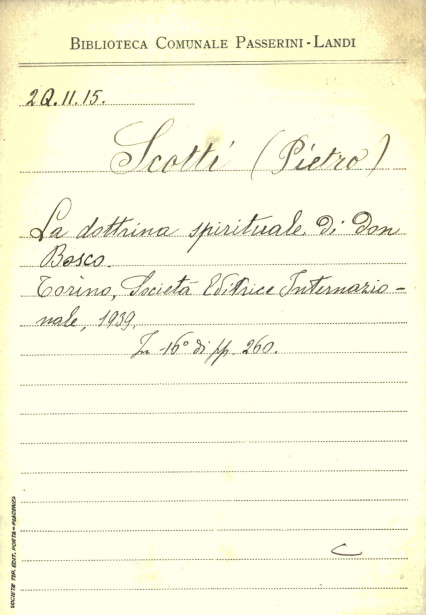 BIBLIOTECA COMUNALE PASSERINI-LANDI
2Q.11.15.
Scotti (Pietro)
La dottrina spirituale di don
Bosco.
Torino, Società Editrice Internazio-
nale, 1939.
In 16° di pp. 260.
C
SOCIETÀ TIP. EDIT. PORTA - PIACENZA